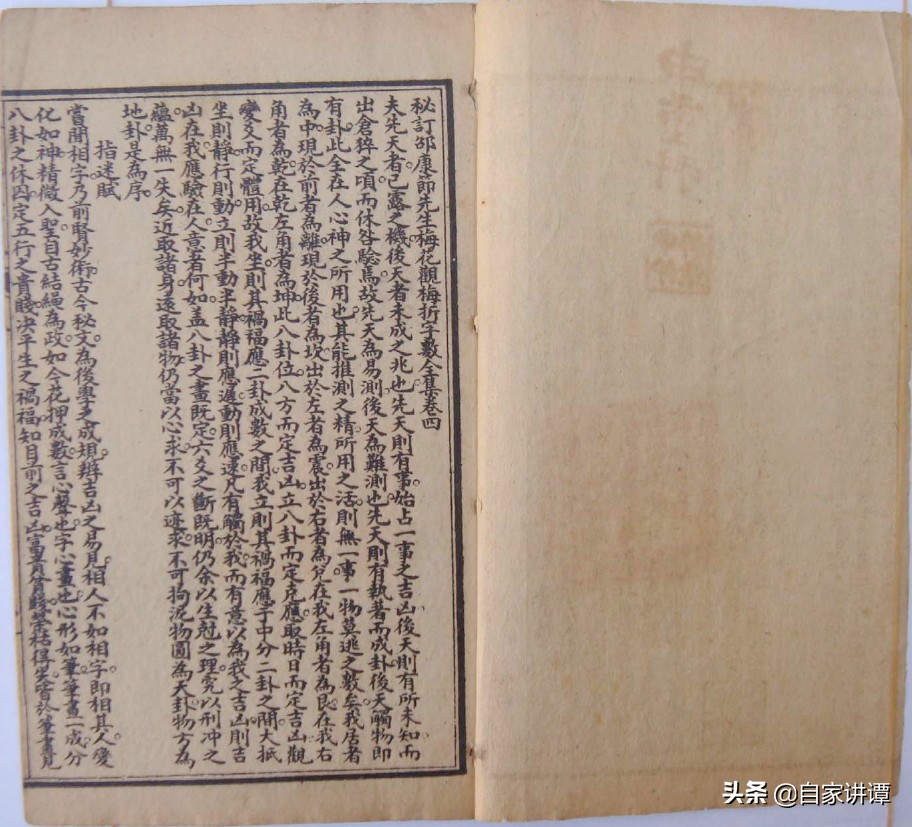 秘訂邵康節先生梅花觀梅折字數全集卷四
夫先天者已露之機後天者未成之兆也先天則有事始占一事之吉凶後天則有所未知而
出倉猝之頃而休咎驗焉故先天為易測後天為難測也先天則有執著而成卦後天觸物即
有卦此全在人心神之所用也其能推測之精所用之活則無一事一物莫逃之數矣我居者
為中現於前者為離現於後者為坎出於左者為震出於右者為兌在我左角者為艮在我右
角者為乾在乾左角者為坤此八卦位八方而定吉凶立八卦而定克應取時日而定吉凶觀
變爻而定體用故我坐則其禍福應二卦成數之間我立則其禍福應于中分二卦之間大抵
坐則靜行則動立則半動半靜靜則應遲動則應速凡有觸於我而有意以為我之吉凶則吉
凶在我應驗在人意者何如盖八卦之畫既定六爻之斷既明仍余以生尅之理究以刑冲之
蘊萬無一失矣近取諸身遠取諸物仍當以心求不可以迹求不可拘泥物圓為天卦物方為
地卦是為序
指迷賦
嘗聞相字乃前賢妙術古今秘文為後學之成規辨吉凶之易見相人不如相字即相其人變
化如神精微入聖自古結繩為政如今花押成數言心聲也字心畫也心形如筆筆畫一成分
八卦之休囚定五行之貴賤决平生之禍福知目前之吉凶富貴貧賤榮枯得失皆於筆畫見
头条 @自家讲谭